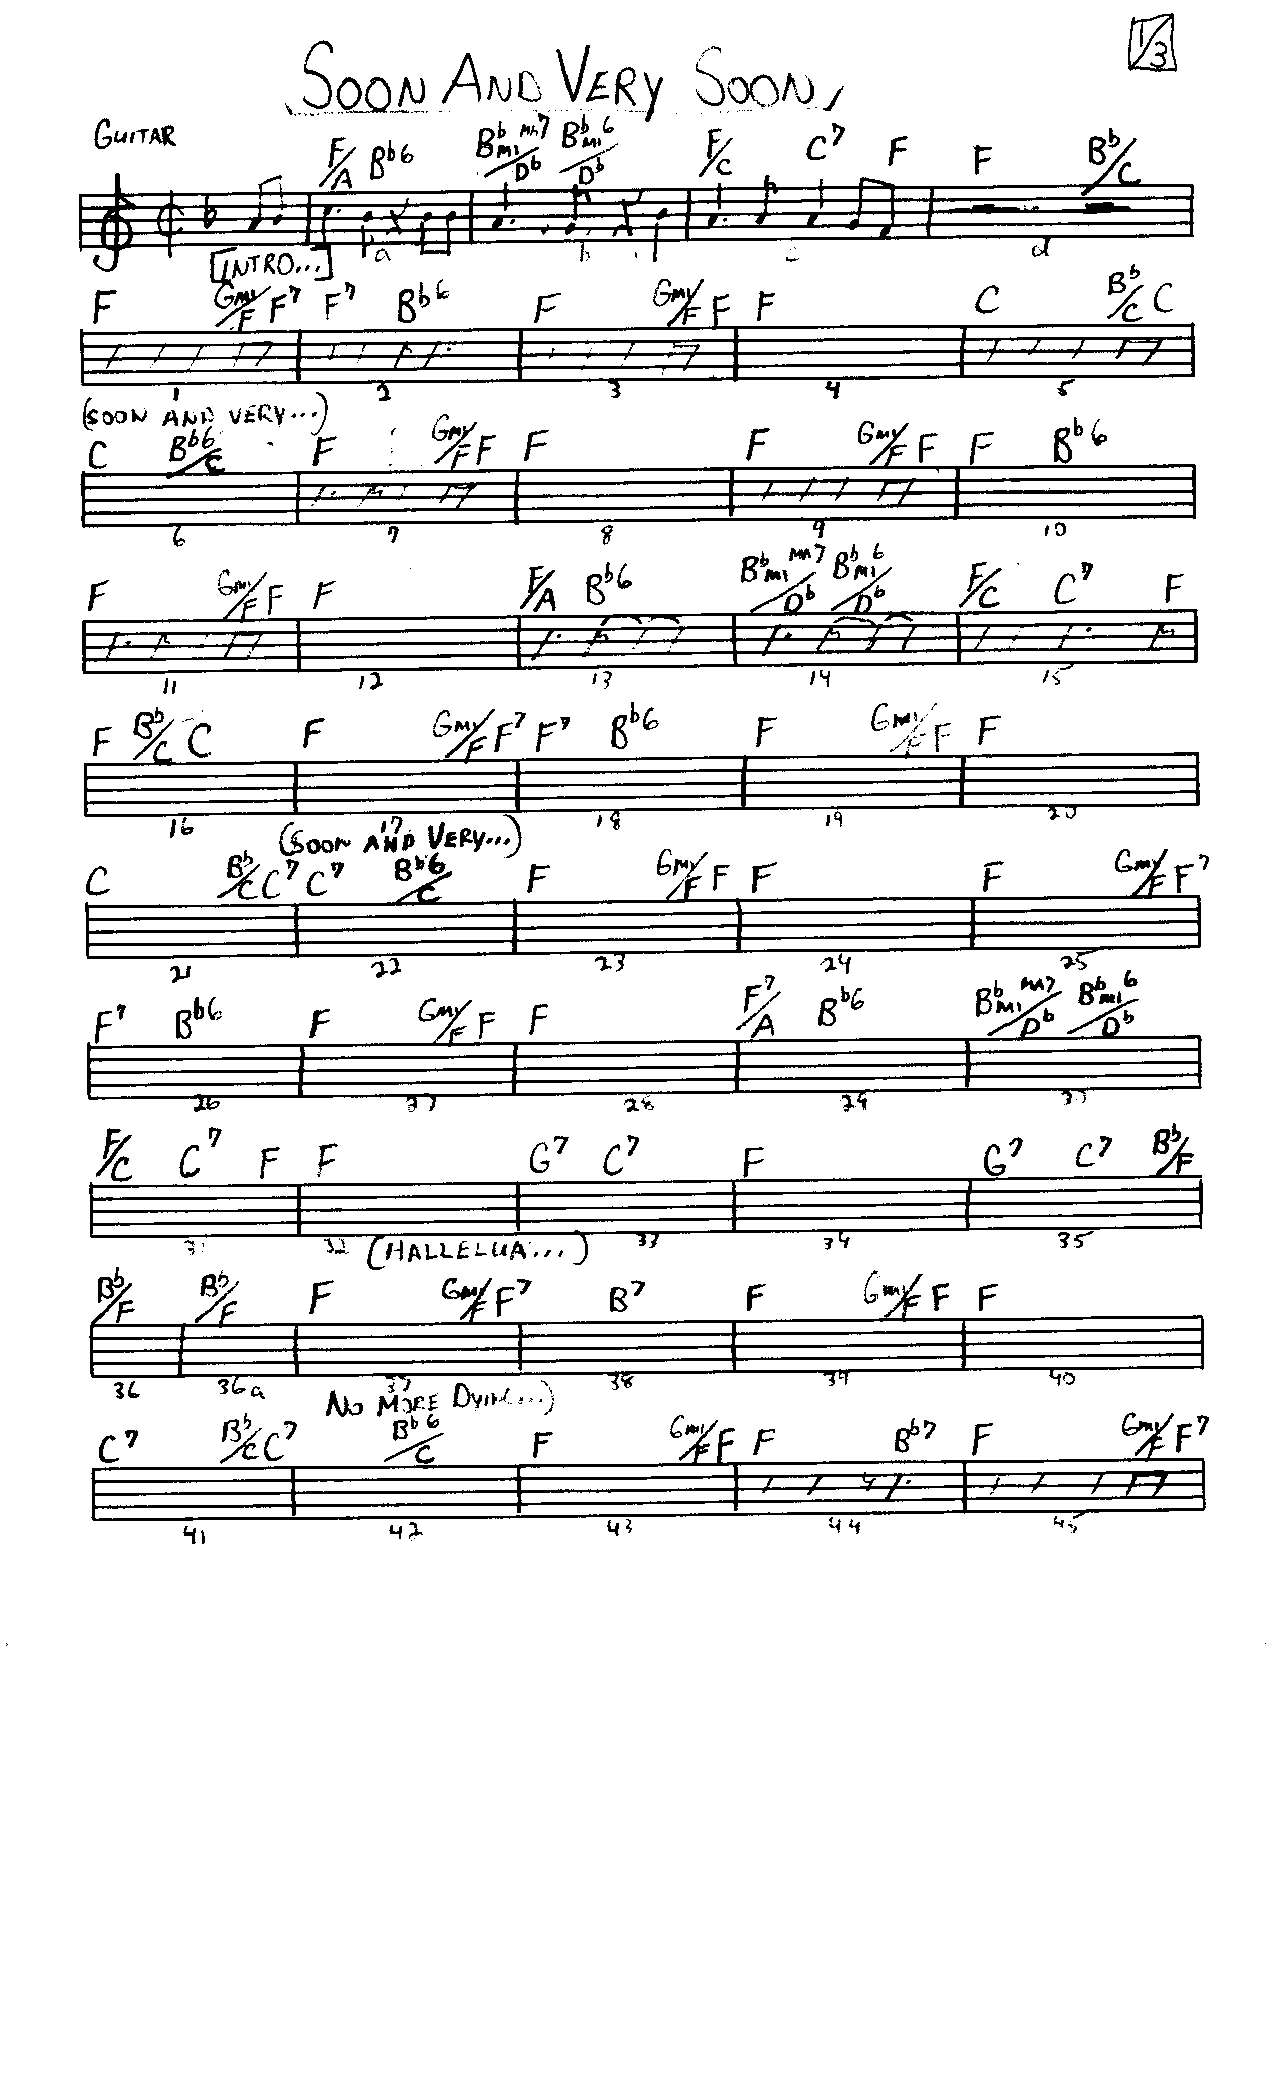 1/3
SOON AND VERY SOON
GUITAR
F/A B♭6 B♭MI MA7/D♭ B♭MI6/D♭ F/C C7 F F B♭/C
a b c d
[INTRO...]
F GMI/F F7 F7 B♭6 F GMI/F F F C B♭/C C
1 2 3 4 5
(SOON AND VERY...)
C B♭6/C F GMI/F F F F GMI/F F F B♭6
6 7 8 9 10
F GMI/F F F F/A B♭6 B♭MI MA7/D♭ B♭MI6/D♭ F/C C7 F
11 12 13 14 15
F B♭/C C F GMI/F F7 F7 B♭6 F GMI/F F F
16 17 18 19 20
(SOON AND VERY...)
C B♭/C C7 C7 B♭6/C F GMI/F F F F GMI/F F7
21 22 23 24 25
F7 B♭6 F GMI/F F F F7/A B♭6 B♭MI MA7/D♭ B♭MI6/D♭
26 27 28 29
F/C C7 F F G7 C7 F G7 C7 B♭/F
32 33 34 35
(HALLELUA...)
B♭/F B♭/F F GMI/F F7 B7 F GMI/F F F
36 36a 37 38 39 40
NO MORE DYING...)
C7 B♭/C C7 B♭6/C F GMI/F F F B♭7 F GMI/F F7
41 42 43 44 45